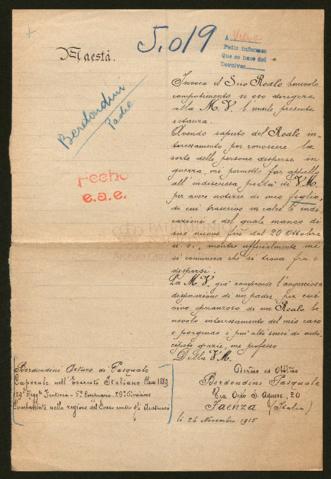 5.019
A
Pedir informes
Que se hace del
Devolver
Maestà.
Berdondini
Padre
Fecho
e.a.e.
Invoco il Suo Reale benevolo
compatimento se oso dirigere
alla M. V. l'umile presente
istanza.
Avendo saputo del Reale in-
teressamento per conoscere la
sorte delle persone disperse in
guerra, mi permetto far appello
all'indiscussa pietà di V. M.
per avere notizie di mio figlio,
di cui trascrivo in calce le indi-
cazioni e del quale manco di
sue nuove fin dal 20 Ottobre
u. s., mentre ufficialmente mi
si comunica che si trova fra i
dispersi.
La M. V. già comprende l'angosciosa
disperazione di un padre, fin d'ora
sono speranzoso di un Reale be-
nevolo interessamento del mio caso
e porgendo i più alti sensi di anti-
cipate grazie, mi professo
Della V. M.
Berdondini Pasquale
Via Orto S. Agnese, 20
Faenza (Italia)
li 26 Novembre 1915
Berdondini Arturo di Pasquale
Caporale nell'Esercito Italiano Classe
129º Regg. Fanteria - 29ª Divisione
Combattente nella regione del Carso contro gli Austriaci